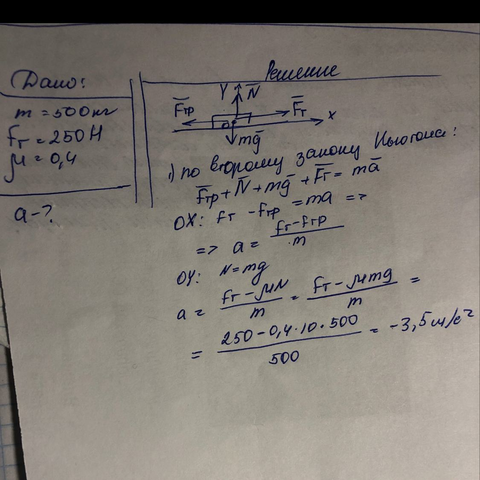 Дано:
m = 500 кг
Fт = 250 Н
μ = 0,4
a - ?
Решение
Y N̅
F̅тр F̅т x
mg̅
1) по второму закону Ньютона:
F̅тр + N̅ + mg̅ + F̅т = ma̅
OX: Fт - Fтр = ma =>
=> a = (Fт - Fтр)/m
OY: N = mg
a = (Fт - μN)/m = (Fт - μmg)/m =
= (250 - 0,4·10·500)/500 = -3,5 м/с²